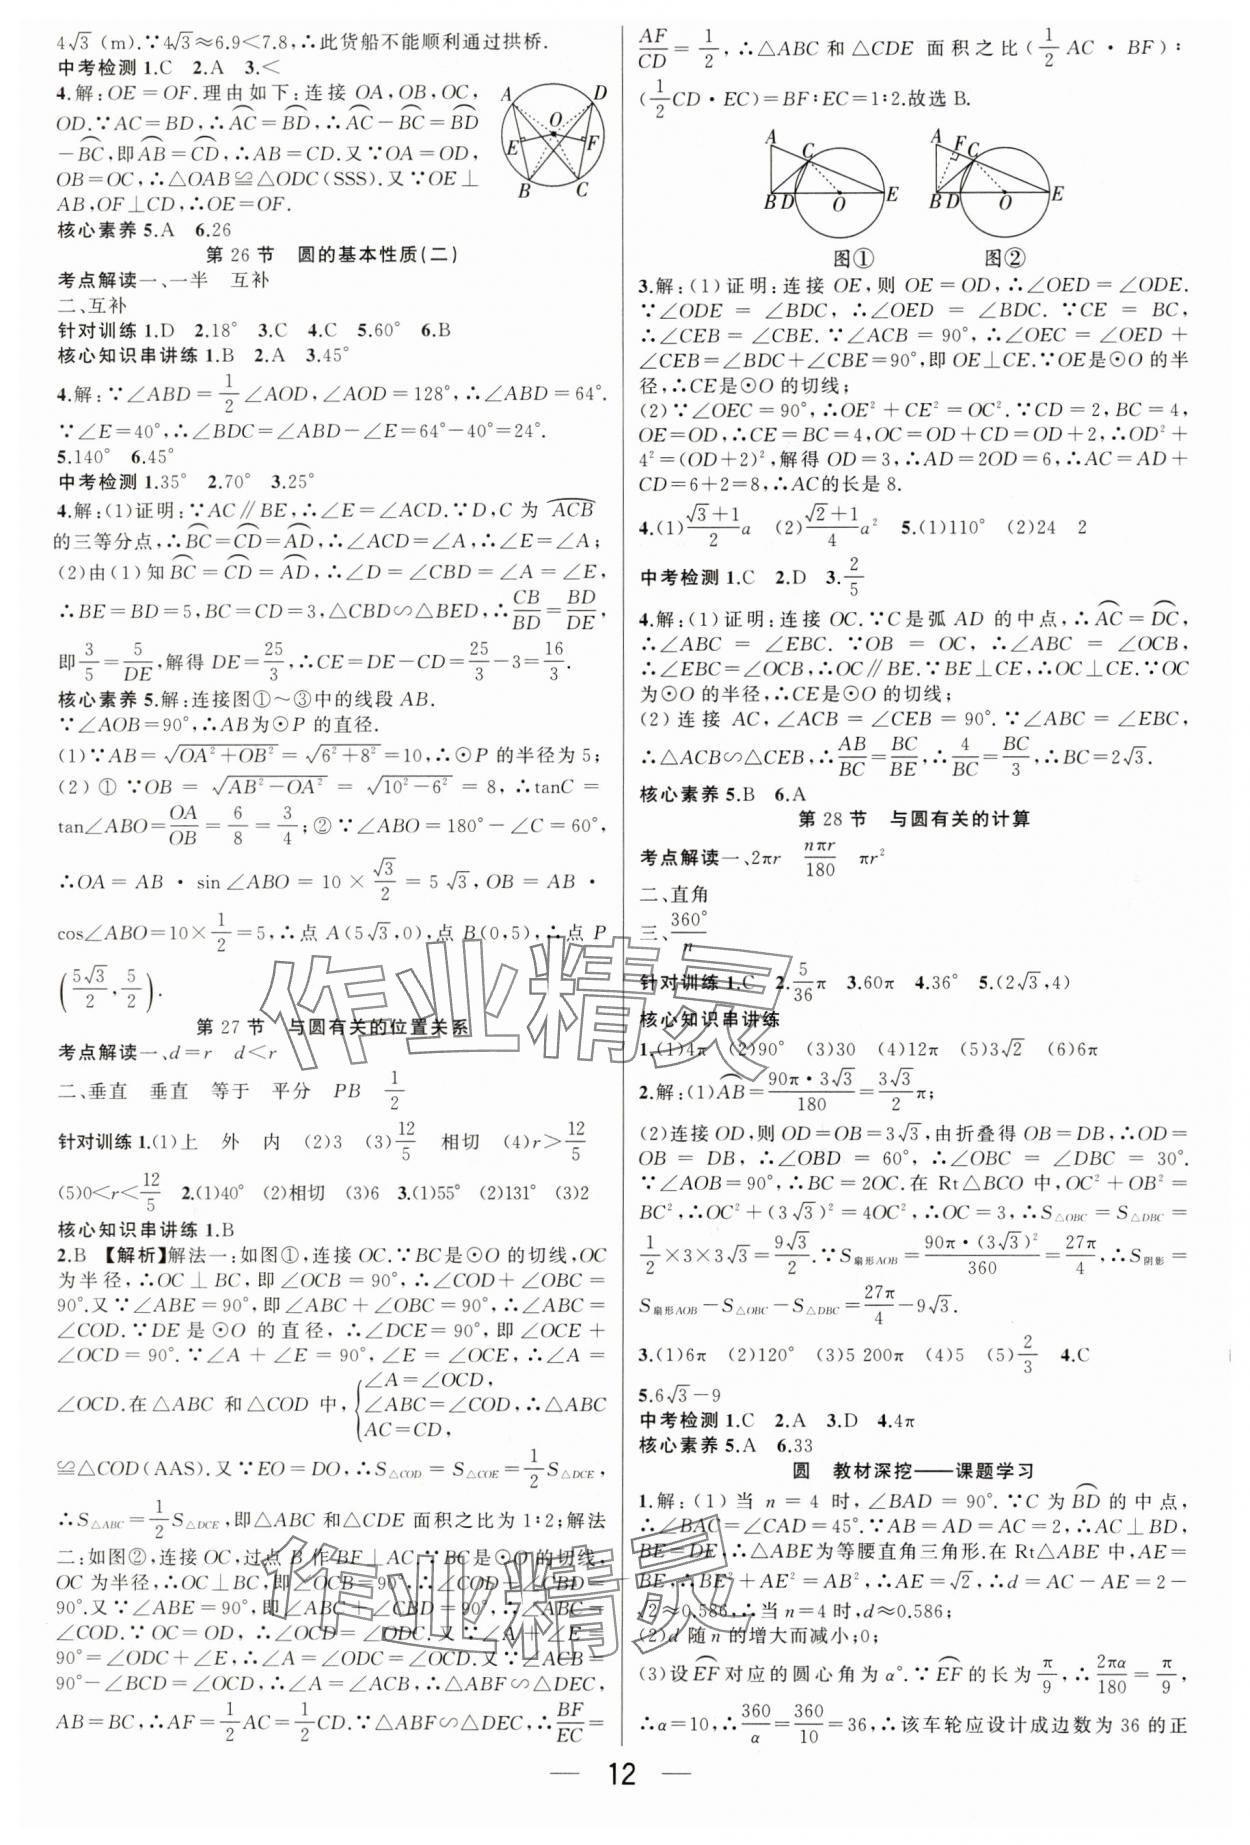 4√3 (m).∵4√3≈6.9<7.8,∴此货船不能顺利通过拱桥.
中考检测 1.C 2.A 3.<
4.解:OE=OF.理由如下:连接 OA,OB,OC,
OD.∵AC=BD,∴⌒AC=⌒BD,∴⌒AC-⌒BC=⌒BD
-⌒BC,即⌒AB=⌒CD,∴AB=CD.又∵OA=OD,
OB=OC,∴△OAB≌△ODC(SSS).又∵OE⊥
AB,OF⊥CD,∴OE=OF.
A D O E F B C
核心素养 5.A 6.26
第 26 节 圆的基本性质(二)
考点解读 一、一半 互补
二、互补
针对训练 1.D 2.18° 3.C 4.C 5.60° 6.B
核心知识串讲练 1.B 2.A 3.45°
4.解:∵∠ABD=1/2∠AOD,∠AOD=128°,∴∠ABD=64°.
∵∠E=40°,∴∠BDC=∠ABD-∠E=64°-40°=24°.
5.140° 6.45°
中考检测 1.35° 2.70° 3.25°
4.解:(1)证明:∵AC∥BE,∴∠E=∠ACD.∵D,C 为 ⌒ACB
的三等分点,∴⌒BC=⌒CD=⌒AD,∴∠ACD=∠A,∴∠E=∠A;
(2)由(1)知⌒BC=⌒CD=⌒AD,∴∠D=∠CBD=∠A=∠E,
∴BE=BD=5,BC=CD=3,△CBD∽△BED,∴CB/BD=BD/DE,
即3/5=5/DE,解得 DE=25/3,∴CE=DE-CD=25/3-3=16/3.
核心素养 5.解:连接图①~③中的线段 AB.
∵∠AOB=90°,∴AB为⊙P 的直径.
(1)∵AB=√(OA²+OB²)=√(6²+8²)=10,∴⊙P 的半径为 5;
(2) ① ∵OB = √(AB²-OA²) = √(10²-6²) = 8,∴tanC =
tan∠ABO=OA/OB=6/8=3/4;②∵∠ABO=180°-∠C=60°,
∴OA = AB · sin∠ABO = 10 × √3/2 = 5√3,OB = AB ·
cos∠ABO=10×1/2=5,∴点 A(5√3,0),点 B(0,5),∴点 P
(5√3/2,5/2).
第 27 节 与圆有关的位置关系
考点解读 一、d=r d<r
二、垂直 垂直 等于 平分 PB 1/2
针对训练 1.(1)上 外 内 (2)3 (3)12/5 相切 (4)r>12/5
(5)0<r<12/5 2.(1)40° (2)相切 (3)6 3.(1)55° (2)131° (3)2
核心知识串讲练 1.B
2.B 【解析】解法一:如图①,连接 OC.∵BC是⊙O 的切线,OC
为半径,∴OC⊥BC,即∠OCB=90°,∴∠COD+∠OBC=
90°.又∵∠ABE=90°,即∠ABC+∠OBC=90°,∴∠ABC=
∠COD.∵DE是⊙O 的直径,∴∠DCE=90°,即∠OCE+
∠OCD=90°.∵∠A+∠E=90°,∠E=∠OCE,∴∠A=
∠OCD.在△ABC 和△COD 中,{∠A=∠OCD, ∠ABC=∠COD, AC=CD, ∴△ABC
≌△COD(AAS).又∵EO=DO,∴S△COD=S△COE=1/2S△DCE,
∴S△ABC=1/2S△DCE,即△ABC 和△CDE 面积之比为 1∶2;解法
二:如图②,连接 OC,过点 B 作BF⊥AC.∵BC是⊙O 的切线,
OC 为半径,∴OC⊥BC,即∠OCB=90°,∴∠COD+∠CBD=
90°.又∵∠ABE=90°,即∠ABC+∠CBD=90°,∴∠ABC=
∠COD.∵OC=OD,∴∠OCD=∠ODC.又∵∠A+∠E=
90°=∠ODC+∠E,∴∠A=∠ODC=∠OCD.又∵∠ACB=
90°-∠BCD=∠OCD,∴∠A=∠ACB,∴△ABF∽△DEC,
AB=BC,∴AF=1/2AC=1/2CD.∵△ABF∽△DEC,∴BF/EC=
AF/CD=1/2,∴△ABC 和△CDE 面积之比(1/2AC·BF)∶
(1/2CD·EC)=BF∶EC=1∶2.故选 B.
A C B D O E A F C B D O E
图① 图②
3.解:(1)证明:连接 OE,则 OE=OD,∴∠OED=∠ODE.
∵∠ODE=∠BDC,∴∠OED=∠BDC.∵CE=BC,
∴∠CEB=∠CBE.∵∠ACB=90°,∴∠OEC=∠OED+
∠CEB=∠BDC+∠CBE=90°,即 OE⊥CE.∵OE是⊙O 的半
径,∴CE是⊙O 的切线;
(2)∵∠OEC=90°,∴OE²+CE²=OC².∵CD=2,BC=4,
OE=OD,∴CE=BC=4,OC=OD+CD=OD+2,∴OD²+
4²=(OD+2)²,解得 OD=3,∴AD=2OD=6,∴AC=AD+
CD=6+2=8,∴AC的长是 8.
4.(1)(√3+1)/2 a (2)(√2+1)/4 a² 5.(1)110° (2)24 2
中考检测 1.C 2.D 3.2/5
4.解:(1)证明:连接 OC.∵C是弧 AD 的中点,∴⌒AC=⌒DC,
∴∠ABC=∠EBC.∵OB=OC,∴∠ABC=∠OCB,
∴∠EBC=∠OCB,∴OC∥BE.∵BE⊥CE,∴OC⊥CE.∵OC
为⊙O 的半径,∴CE是⊙O 的切线;
(2)连接 AC,∠ACB=∠CEB=90°.∵∠ABC=∠EBC,
∴△ACB∽△CEB,∴AB/BC=BC/BE,∴4/BC=BC/3,∴BC=2√3.
核心素养 5.B 6.A
第 28 节 与圆有关的计算
考点解读 一、2πr nπr/180 πr²
二、直角
三、360°/n
针对训练 1.C 2.5/36π 3.60π 4.36° 5.(2√3,4)
核心知识串讲练
1.(1)4π (2)90° (3)30 (4)12π (5)3√2 (6)6π
2.解:(1)⌒AB=90π·3√3/180=3√3/2π;
(2)连接 OD,则 OD=OB=3√3,由折叠得 OB=DB,∴OD=
OB=DB,∴∠OBD=60°,∴∠OBC=∠DBC=30°.
∵∠AOB=90°,∴BC=2OC.在 Rt△BCO 中,OC²+OB²=
BC²,∴OC²+(3√3)²=4OC²,∴OC=3,∴S△OBC=S△DBC=
1/2×3×3√3=9√3/2.∵S扇形AOB=90π·(3√3)²/360=27π/4,∴S阴影=
S扇形AOB-S△OBC-S△DBC=27π/4-9√3.
3.(1)6π (2)120° (3)5 200π (4)5 (5)2/3 4.C
5.6√3-9
中考检测 1.C 2.A 3.D 4.4π
核心素养 5.A 6.33
圆 教材深挖——课题学习
1.解:(1)当 n=4 时,∠BAD=90°.∵C 为⌒BD 的中点,
∴∠BAC=∠CAD=45°.∵AB=AD=AC=2,∴AC⊥BD,
BE=DE,∴△ABE 为等腰直角三角形.在 Rt△ABE 中,AE=
BE,∴BE²+AE²=AB²,∴AE=√2,∴d=AC-AE=2-
√2≈0.586,∴当 n=4时,d≈0.586;
(2)d 随 n 的增大而减小;0;
(3)设⌒EF对应的圆心角为 α°.∵⌒EF的长为π/9,∴2πα/180=π/9,
∴α=10,∴360/α=360/10=36,∴该车轮应设计成边数为 36 的正
12
作业精灵
作业精灵